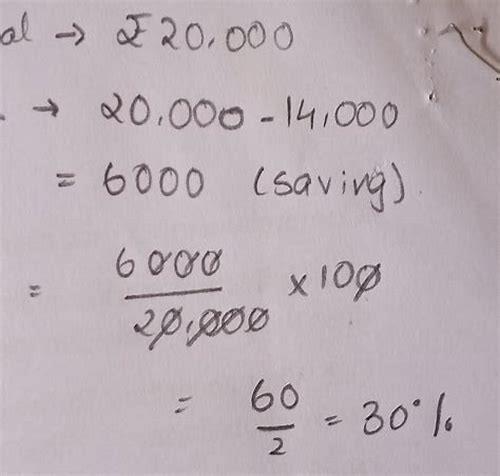 al → ₹ 20,000
→ 20,000 - 14,000
= 6000 (saving)
= 6000/20,000 × 100
= 60/2 = 30%